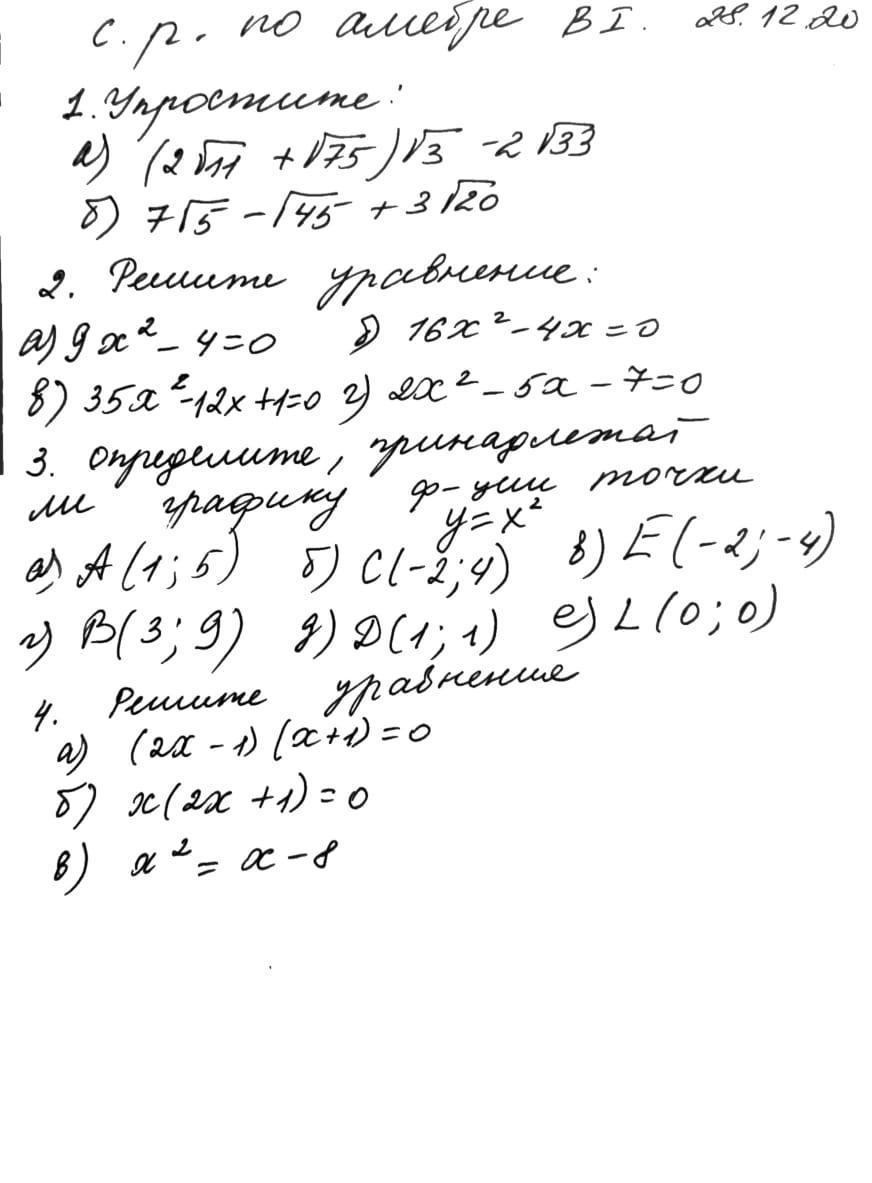 с. р. по алгебре В I. 28.12.20
1. Упростите:
а) (2√11 + √75)√3 - 2√33
б) 7√5 - √45 + 3√20
2. Решите уравнение:
а) 9x² - 4 = 0 б) 16x² - 4x = 0
в) 35x² - 12x + 1 = 0 г) 2x² - 5x - 7 = 0
3. Определите, принадлежат
ли графику ф-ции точки
y = x²
а) A(1; 5) б) C(-2; 4) в) E(-2; -4)
г) B(3; 9) д) D(1; 1) е) L(0; 0)
4. Решите уравнение
а) (2x - 1)(x + 1) = 0
б) x(2x + 1) = 0
в) x² = x - 8